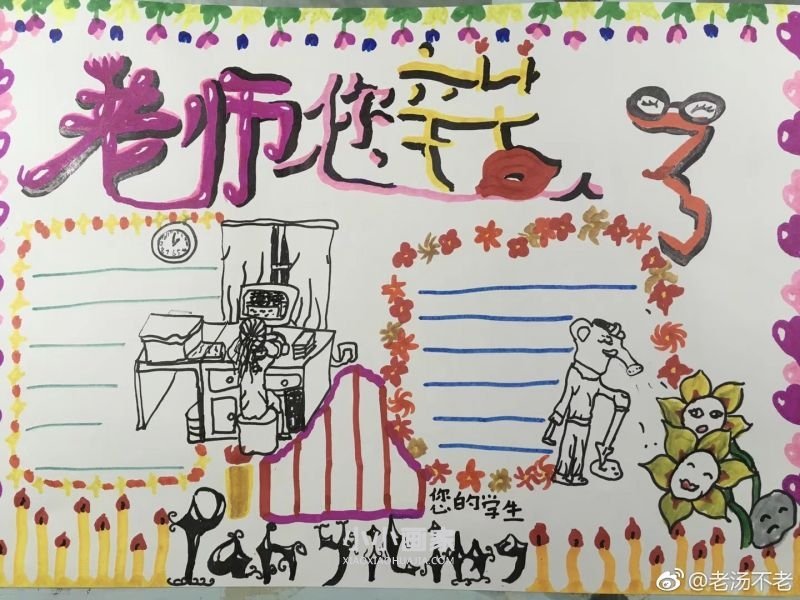 老师您辛苦了
您的学生
小小画家
XIAOXIAOHUAJIA.COM
@老汤不老